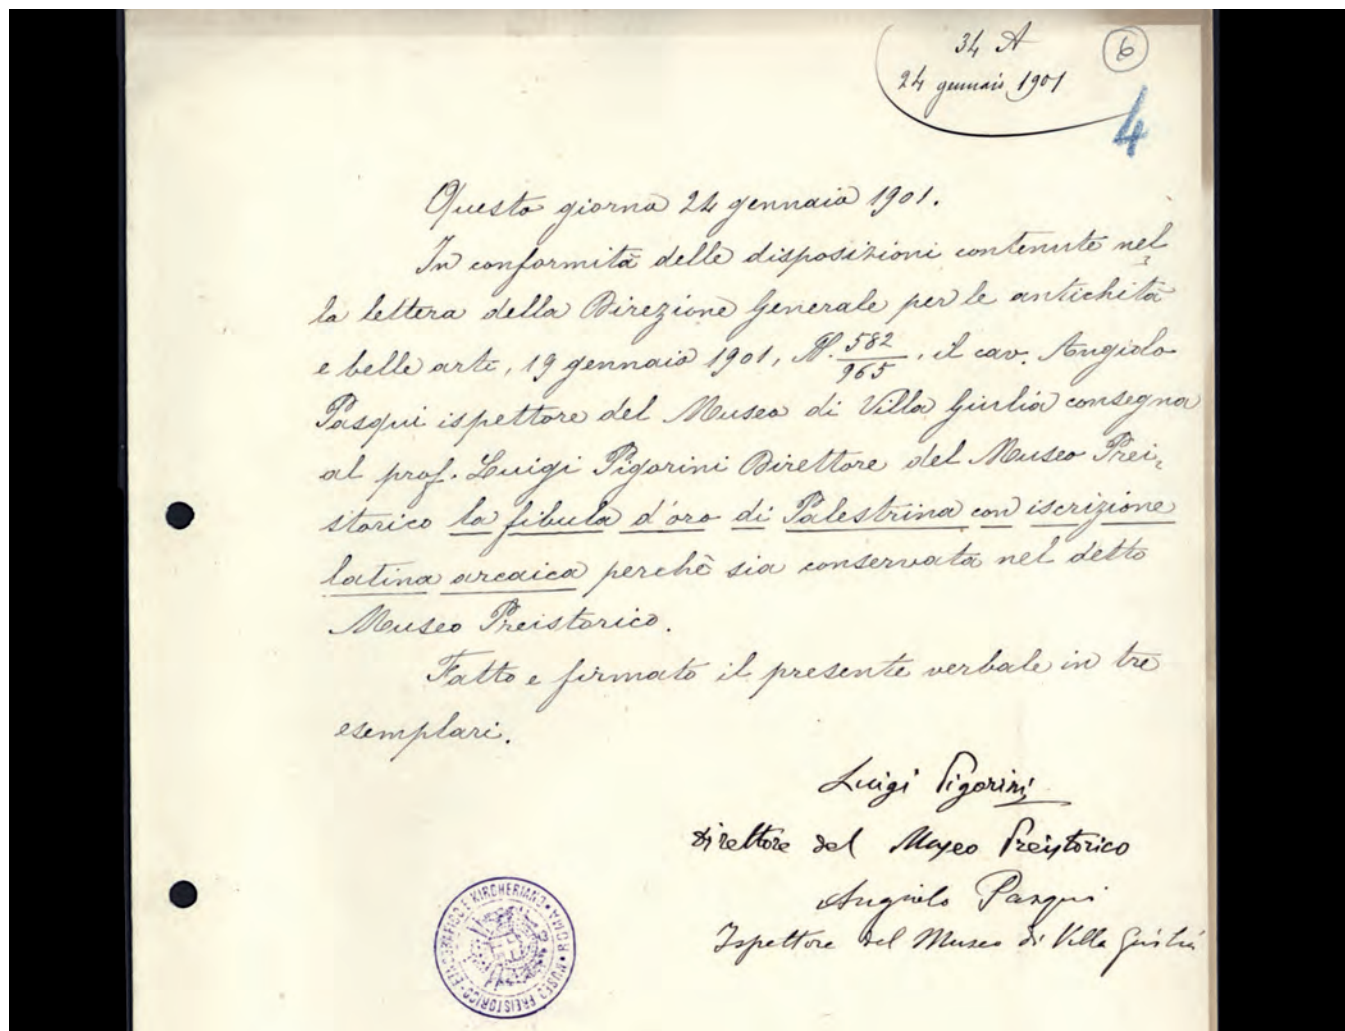 34 A
6
24 gennaio 1901
4
Questo giorno 24 gennaio 1901.
In conformità delle disposizioni contenute nel,
la lettera della Direzione Generale per le antichità
e belle arti, 19 gennaio 1901, N. 582/965, il cav. Angiolo
Pasqui ispettore del Museo di Villa Giulia consegna
al prof. Luigi Pigorini Direttore del Museo Prei,
storico la fibula d'oro di Palestrina con iscrizione
latina arcaica perchè sia conservata nel detto
Museo Preistorico.
Fatto e firmato il presente verbale in tre
esemplari.
Luigi Pigorini
Direttore del Museo Preistorico
Angiolo Pasqui
Ispettore del Museo di Villa Giulia
MUSEO PREISTORICO · ETNOGRAFICO E KIRCHERIANO · ROMA ·